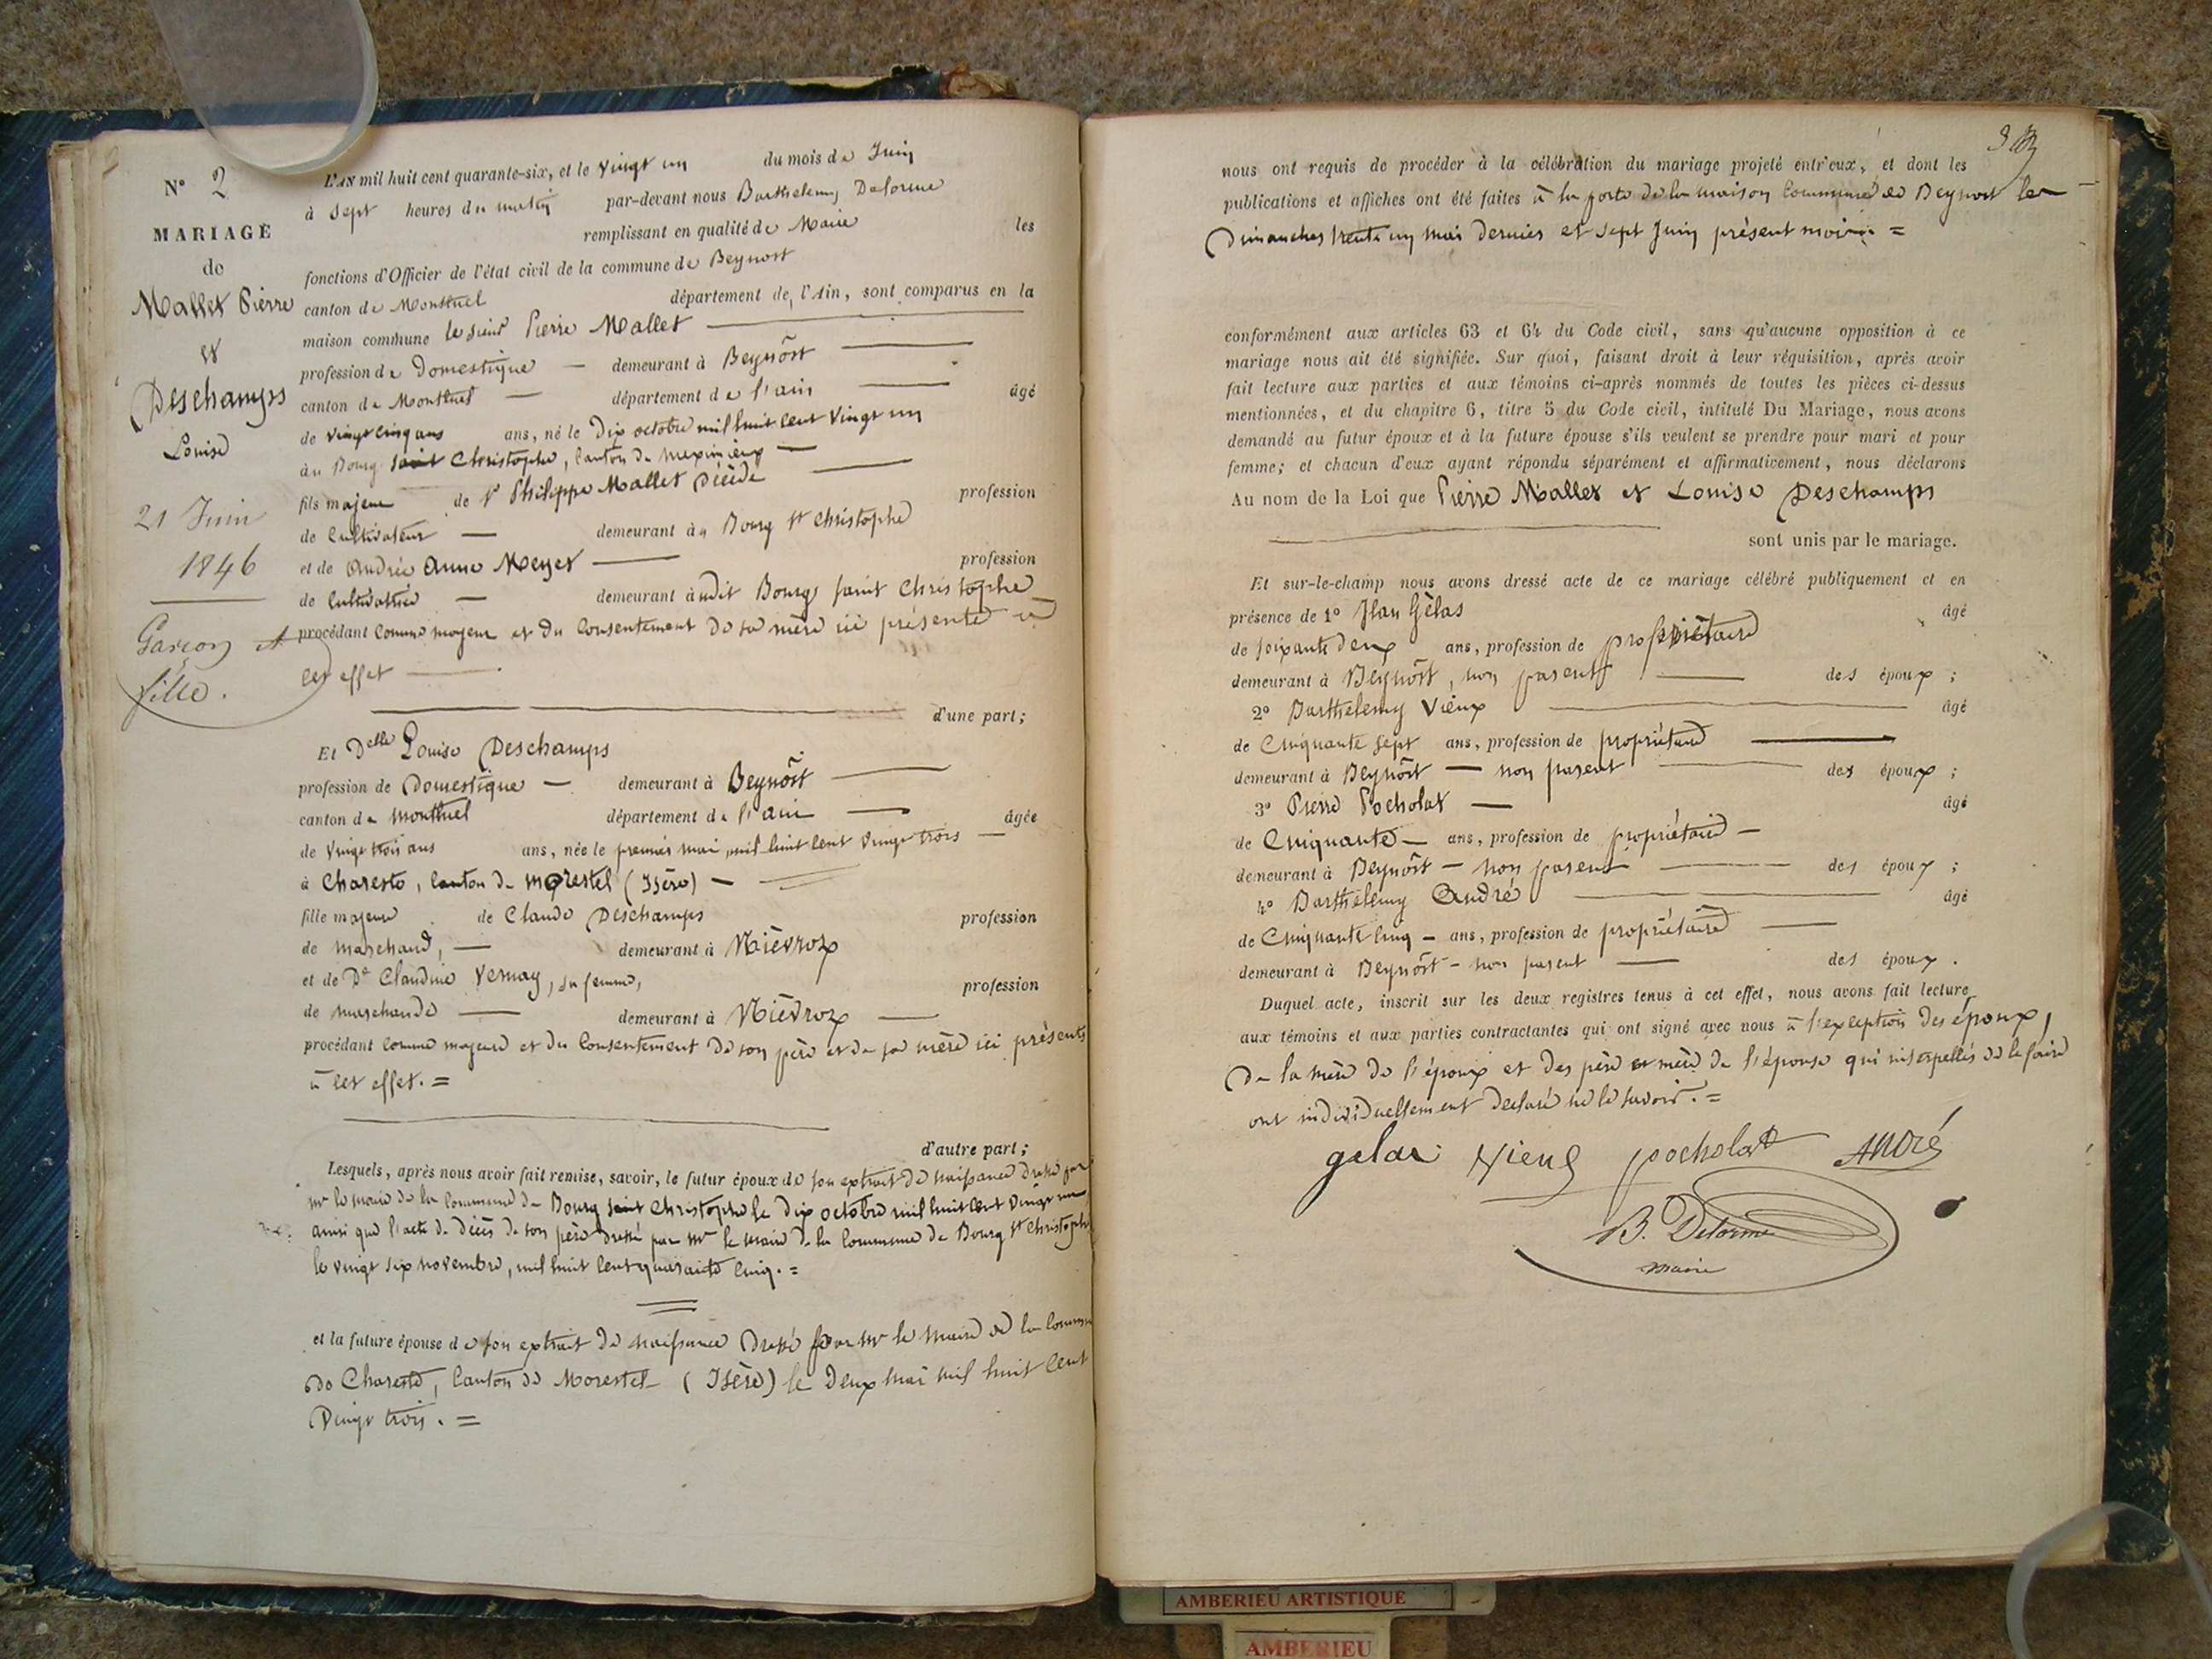 N° 2
MARIAGE
de
Mallet Pierre
et
Deschamps
Louise
21 Juin
1846
Garçon et
fille.
L'AN mil huit cent quarante-six, et le vingt un du mois de Juin
à sept heures du matin par-devant nous Barthelemy Delorme
remplissant en qualité de Maire les
fonctions d'Officier de l'état civil de la commune de Beynost
canton de Montluel département de l'Ain, sont comparus en la
maison commune le sieur Pierre Mallet
profession de Domestique demeurant à Beynost
canton de Montluel département de l'ain âgé
de vingt cinq ans ans, né le dix octobre mil huit cent vingt un
au Bourg saint Christophe, canton de meximieux
fils majeur de Sr Philippe Mallet décédé profession
de cultivateur demeurant au Bourg St Christophe
et de Andrée Anne Meyet profession
de cultivatrice demeurant audit Bourg saint Christophe
procédant comme majeur et du consentement de sa mère ici présente à
cet effet
d'une part;
Et Delle Louise Deschamps
profession de Domestique demeurant à Beynost
canton de montluel département de l'ain âgée
de vingt trois ans ans, née le premier mai mil huit cent vingt trois
à Charette, canton de morestel (Isère)
fille majeure de Claude Deschamps profession
de marchand, demeurant à Nièvroz
et de De Claudine Vernay, sa femme, profession
de marchande demeurant à Nièvroz
procédant comme majeure et du consentement de son père et de sa mère ici présents
à cet effet. =
d'autre part;
Lesquels, après nous avoir fait remise, savoir, le futur époux de son extrait de naissance dressé par
mr le maire de la commune de Bourg saint Christophe le dix octobre mil huit cent vingt un
ainsi que l'acte de décès de son père dressé par mr le maire de la commune de Bourg St Christophe
le vingt six novembre, mil huit cent quarante cinq. =
et la future épouse de son extrait de naissance dressé par mr le maire de la commune
de Charette, canton de Morestel (Isère) le deux mai mil huit cent
vingt trois. =
nous ont requis de procéder à la célébration du mariage projeté entr'eux, et dont les
publications et affiches ont été faites à la porte de la maison commune de Beynost les
Dimanches trente un mai dernier et sept Juin présent mois =
conformément aux articles 63 et 64 du Code civil, sans qu'aucune opposition à ce
mariage nous ait été signifiée. Sur quoi, faisant droit à leur réquisition, après avoir
fait lecture aux parties et aux témoins ci-après nommés de toutes les pièces ci-dessus
mentionnées, et du chapitre 6, titre 5 du Code civil, intitulé Du Mariage, nous avons
demandé au futur époux et à la future épouse s'ils veulent se prendre pour mari et pour
femme; et chacun d'eux ayant répondu séparément et affirmativement, nous déclarons
Au nom de la Loi que Pierre Mallet et Louise Deschamps
sont unis par le mariage.
Et sur-le-champ nous avons dressé acte de ce mariage célébré publiquement et en
présence de 1° Jean Gèlas âgé
de soixante deux ans, profession de propriétaire
demeurant à Beynost, non parent des époux ;
2° Barthelemy Vieux âgé
de Cinquante sept ans, profession de propriétaire
demeurant à Beynost — non parent des époux ;
3° Pierre Pocholat — âgé
de Cinquante — ans, profession de propriétaire —
demeurant à Beynost — non parent des époux ;
4° Barthelemy André âgé
de Cinquante cinq — ans, profession de propriétaire
demeurant à Beynost — non parent des époux.
Duquel acte, inscrit sur les deux registres tenus à cet effet, nous avons fait lecture
aux témoins et aux parties contractantes qui ont signé avec nous à l'exception des époux,
de la mère de l'époux et des père et mère de l'épouse qui interpellés de le faire
ont individuellement declaré ne le savoir. =
gelas Vieux pocholat André
B. Delorme
maire
AMBERIEU ARTISTIQUE
AMBERIEU